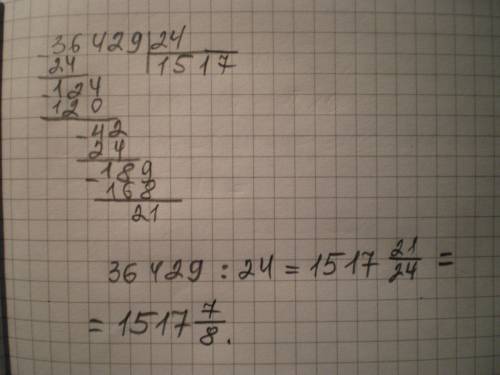 36429 | 24
- 24 | 1517
- 124
120
- 42
24
- 189
168
21
36429 : 24 = 1517 21/24 =
= 1517 7/8.